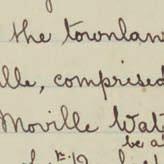 the townlan
lle, comprised
Moville Wat
be a